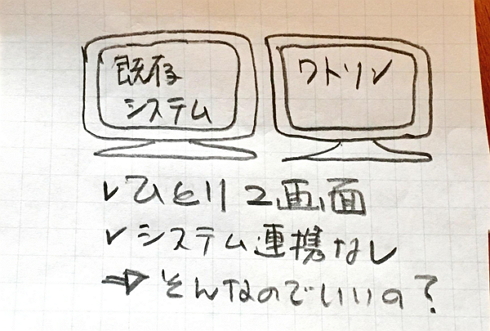 既存
システム
ワトソン
✓ひとり2画面
✓システム連携なし
⇒そんなのでいいの?